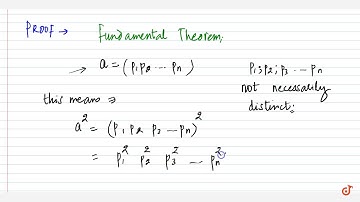 PROOF → Fundamental Theorem:
→ a = (p₁ p₂ ... pₙ)
p₁, p₂, p₃ ... pₙ
not necessarily
distinct.
this means ⇒
a² = (p₁ p₂ p₃ ... pₙ)²
= p₁² p₂² p₃² ... pₙ²